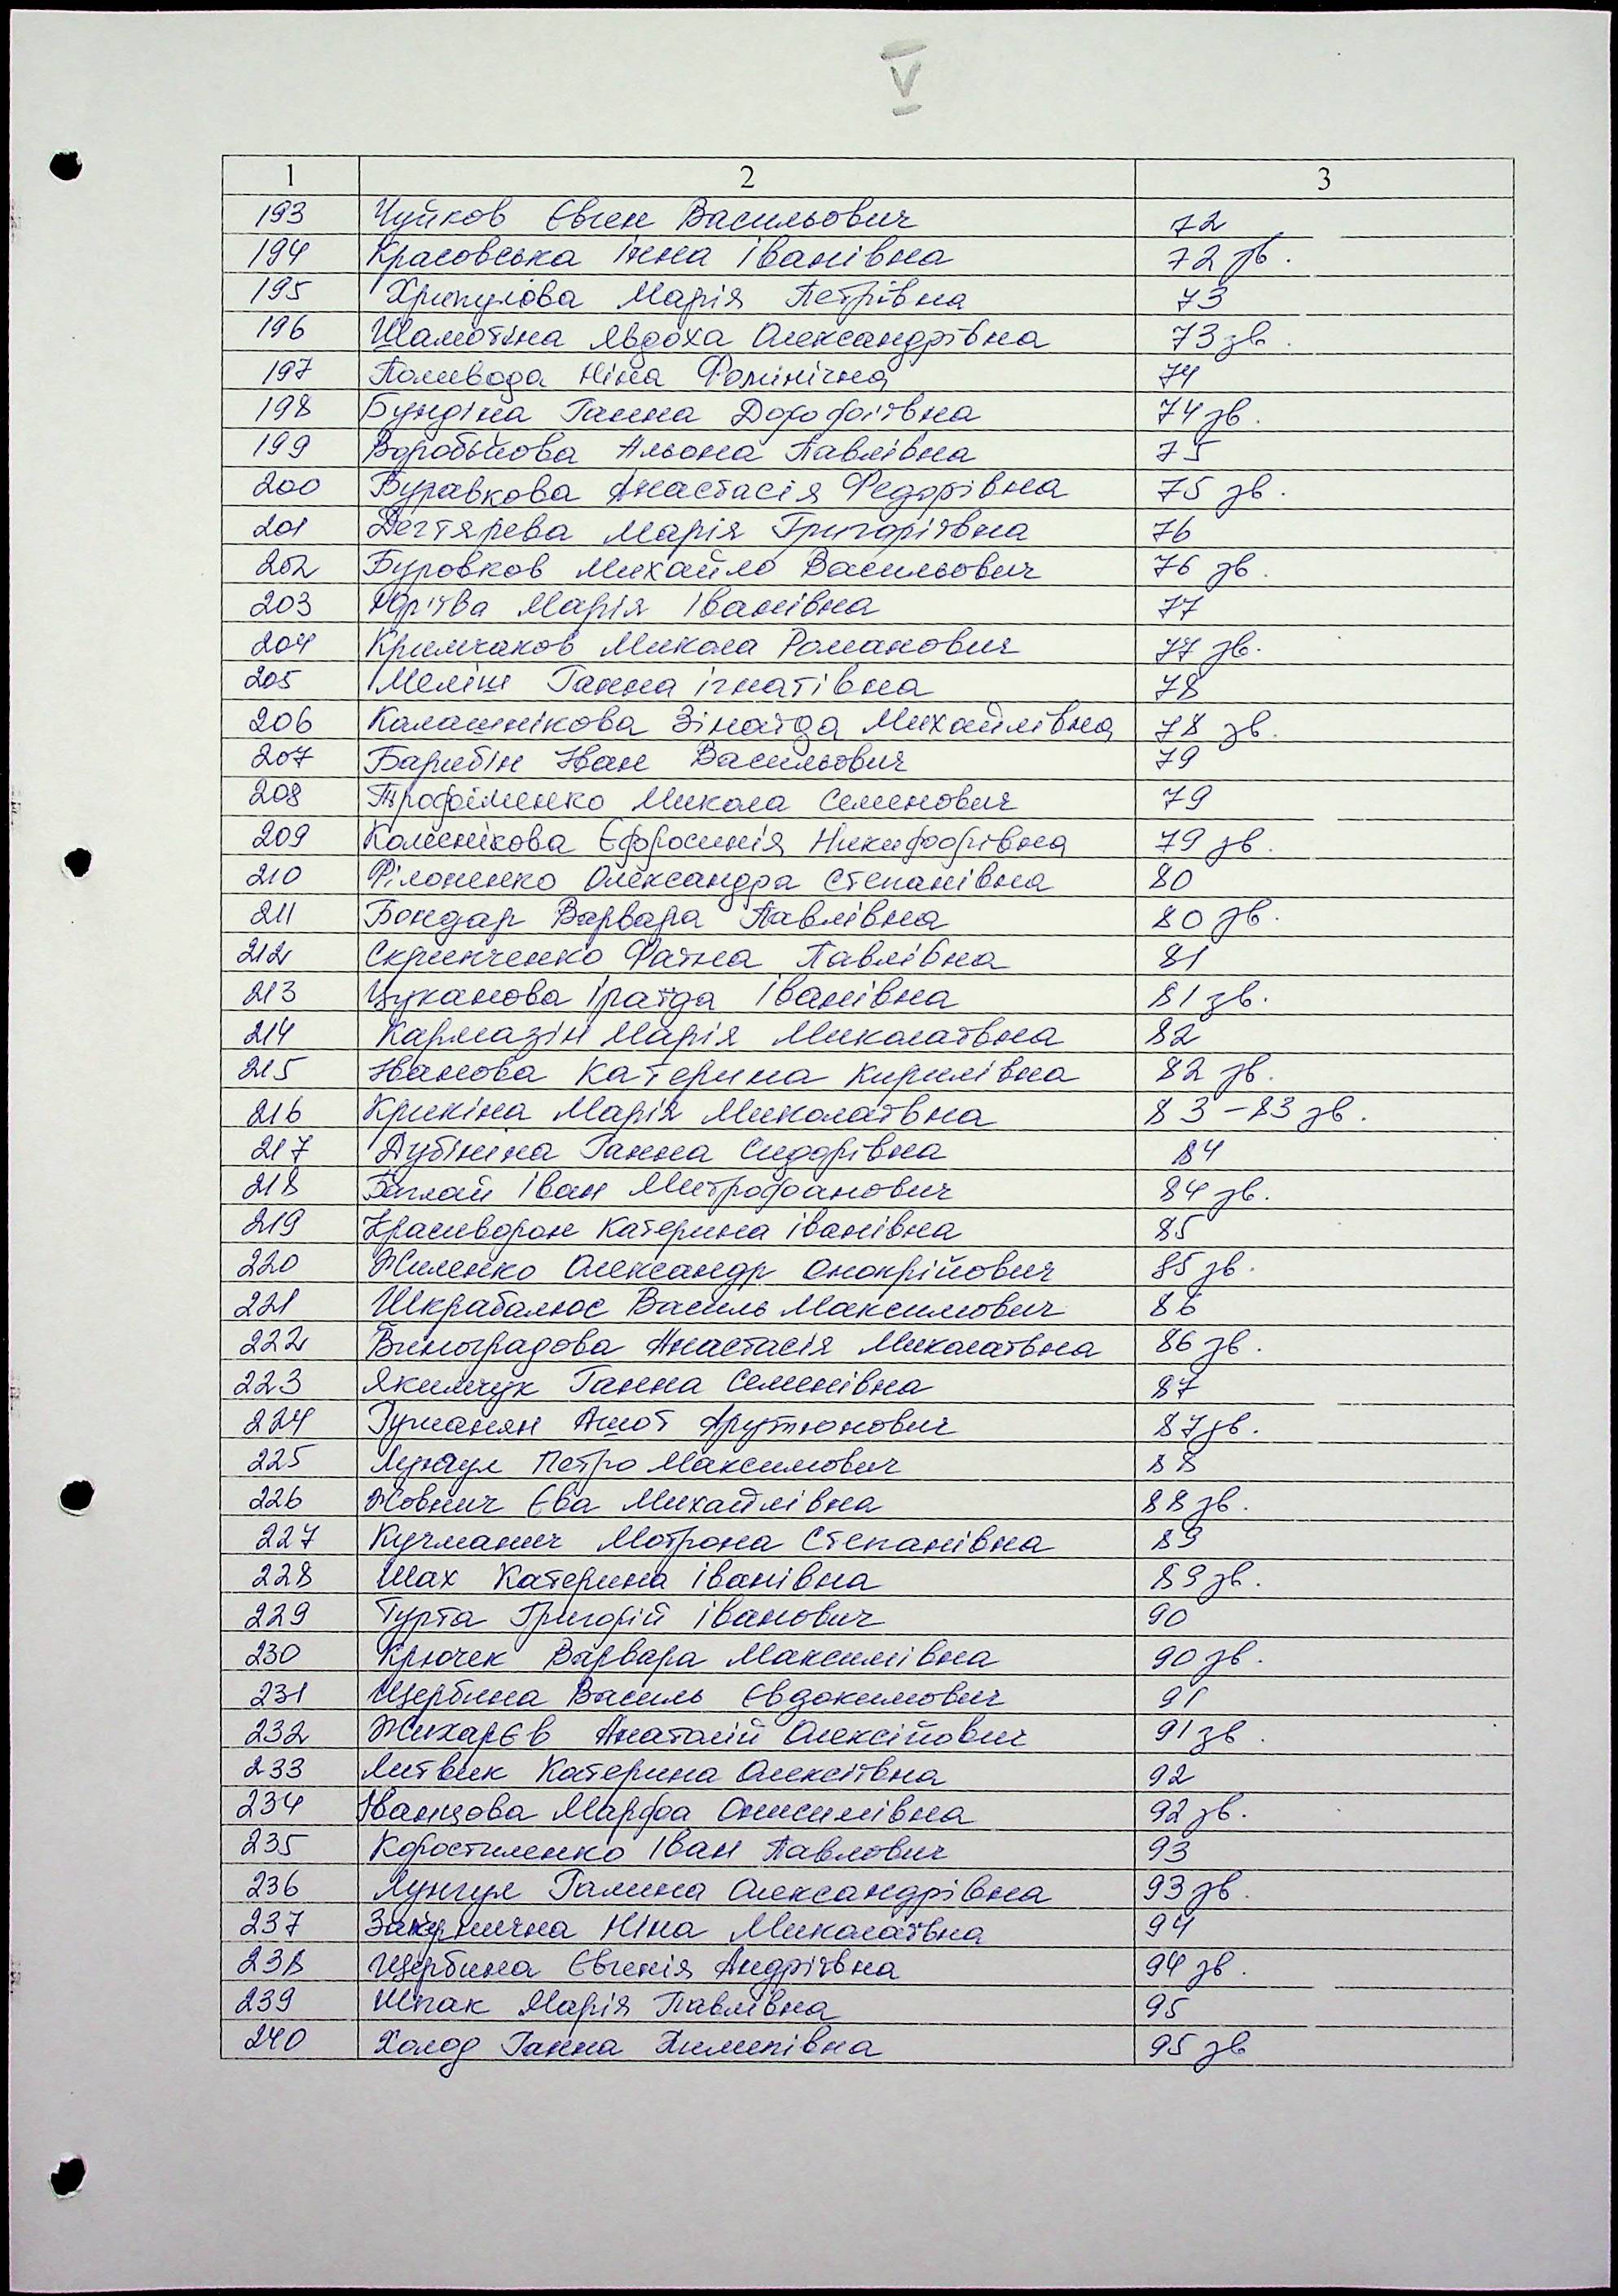 V
1 2 3
193 Чуйков Євген Васильович 72
194 Красовська Інна Іванівна 72 зв.
195 Хрипулова Марія Петрівна 73
196 Шамотіна Явдоха Олександрівна 73 зв.
197 Поливода Ніна Фомінічна 74
198 Бундіна Ганна Дорофоіївна 74 зв.
199 Воробьйова Альона Павлівна 75
200 Буравкова Анастасія Федорівна 75 зв.
201 Дегтярева Марія Григоріївна 76
202 Буровков Михайло Васильович 76 зв.
203 Марія Іванівна 77
204 Кримчаков Микола Романович 77 зв.
205 Меліш Ганна Ігнатівна 78
206 Калашнікова Зінаїда Михайлівна 78 зв.
207 Барибін Іван Васильович 79
208 Трофоіменко Микола Семенович 79
209 Колєснікова Єфросинія Никифорівна 79 зв.
210 Філоненко Олександра Степанівна 80
211 Бондар Варвара Павлівна 80 зв.
212 Скринченко Фаїна Павлівна 81
213 Цуканова Іраїда Іванівна 81 зв.
214 Кармазін Марія Миколаївна 82
215 Іванова Катерина Кирилівна 82 зв.
216 Крикіна Марія Миколаївна 83-83 зв.
217 Дубініна Ганна Сидорівна 84
218 Баглай Іван Митрофанович 84 зв.
219 Катерина Іванівна 85
220 Жиленко Олександр Онокрійович 85 зв.
221 Шкрабалюс Василь Максимович 86
222 Виноградова Анастасія Миколаївна 86 зв.
223 Якимчук Ганна Семенівна 87
224 Туманян Ашот Арутюнович 87 зв.
225 Лунгул Петро Максимович 88
226 Жовнич Єва Михайлівна 88 зв.
227 Кучманич Мотрона Степанівна 89
228 Шах Катерина Іванівна 89 зв.
229 Турта Григорій Іванович 90
230 Крючек Варвара Максимівна 90 зв.
231 Щербина Василь Євдокимович 91
232 Жихарєв Анатолій Олексійович 91 зв.
233 Литвик Катерина Олексіївна 92
234 Іванцова Марфа Онисимівна 92 зв.
235 Коростиленко Іван Павлович 93
236 Лунгул Галина Олександрівна 93 зв.
237 Ніна Миколаївна 94
238 Щербина Євгенія Андріївна 94 зв.
239 Шпак Марія Павлівна 95
240 Холод Ганна Пилипівна 95 зв